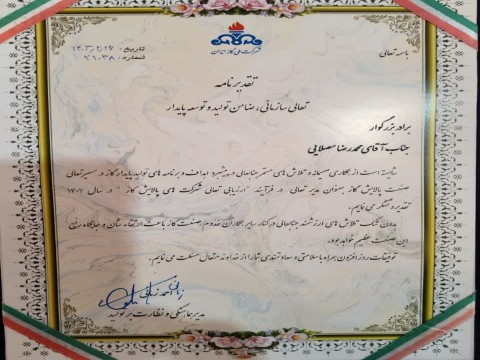 باسمه تعالی
شرکت ملی گاز ایران
تاریخ: ۱۴۰۳/۲/۱۶
شماره: ۲۱۰۳۸
تقدیرنامه
تعالی سازمانی، ضامن تولید و توسعه پایدار
برادر بزرگوار
جناب آقای محمدرضا مصلایی
شایسته است از همکاری صمیمانه و تلاش های مستمر جنابعالی در پیشبرد اهداف و برنامه های تولید پایدار گاز و مسیر تعالی
صنعت پالایش گاز بعنوان مدیر تعالی در فرآیند "ارزیابی تعالی شرکت های پالایش گاز" در سال ۱۴۰۲
تقدیر و تشکر می نمایم.
بدون شک تلاش های ارزشمند جنابعالی در کنار سایر همکاران خدوم صنعت گاز باعث ارتقاء شأن و جایگاه رفیع
این صنعت عظیم خواهد بود.
توفیقات روزافزون همراه با سلامتی و سعادتمندی شما را از خداوند متعال مسئلت می نمایم.
مدیر هماهنگی و نظارت بر تولید